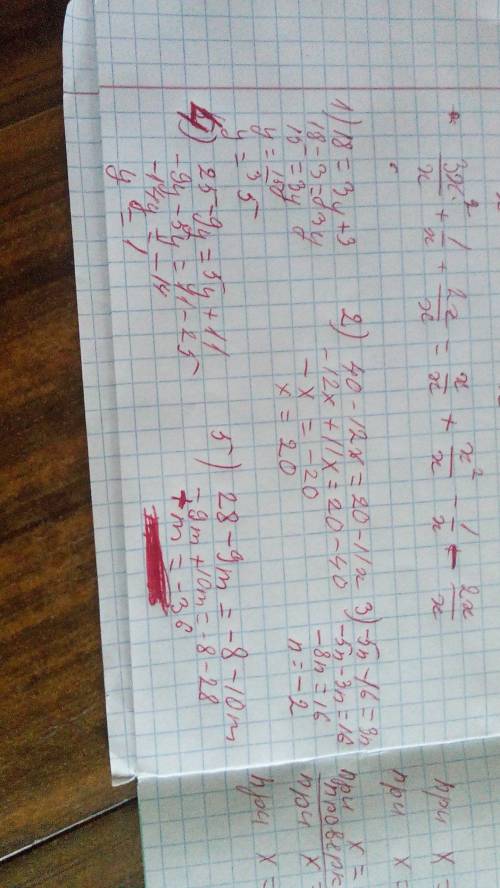 3x²/x + 1/x + 2x/x = x/x + x²/x - 1/x - 2x/x
1) 18 = 3y + 3
18 - 3 = 3y
15 = 3y
y = 3
y = 5
2) 40 - 12x = 20 - 11x
-12x + 11x = 20 - 40
-x = -20
x = 20
3) -5n - 16 = 3n
-5n - 3n = 16
-8n = 16
n = -2
4) 25 - 9y = 5y + 11
-9y - 5y = 11 - 25
-14y = -14
y = 1
5) 28 - 9m = -8 - 10m
-9m + 10m = -8 - 28
+m = -36
при x
при x
при x =
проверка
при x =
при x =